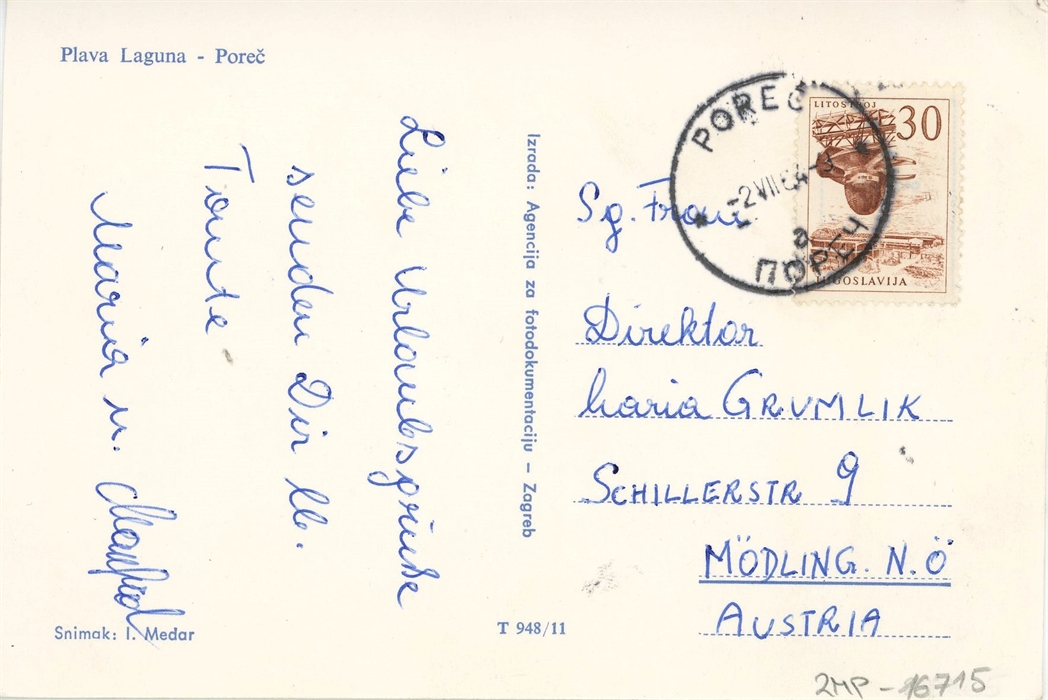 Plava Laguna - Poreč
Liebe Urlaubsgrüße
senden Dir lb.
Tante
Maria u. Manfred
Snimak: I. Medar
Izrada: Agencija za fotodokumentaciju – Zagreb
T 948/11
POREČ
-2 VII 64-
a
ПОРЕЧ
LITOSTROJ
30
JUGOSLAVIJA
Sg. Frau
Direktor
Maria GRUMLIK
SCHILLERSTR 9
MÖDLING. N.Ö
AUSTRIA
2MP - 16715